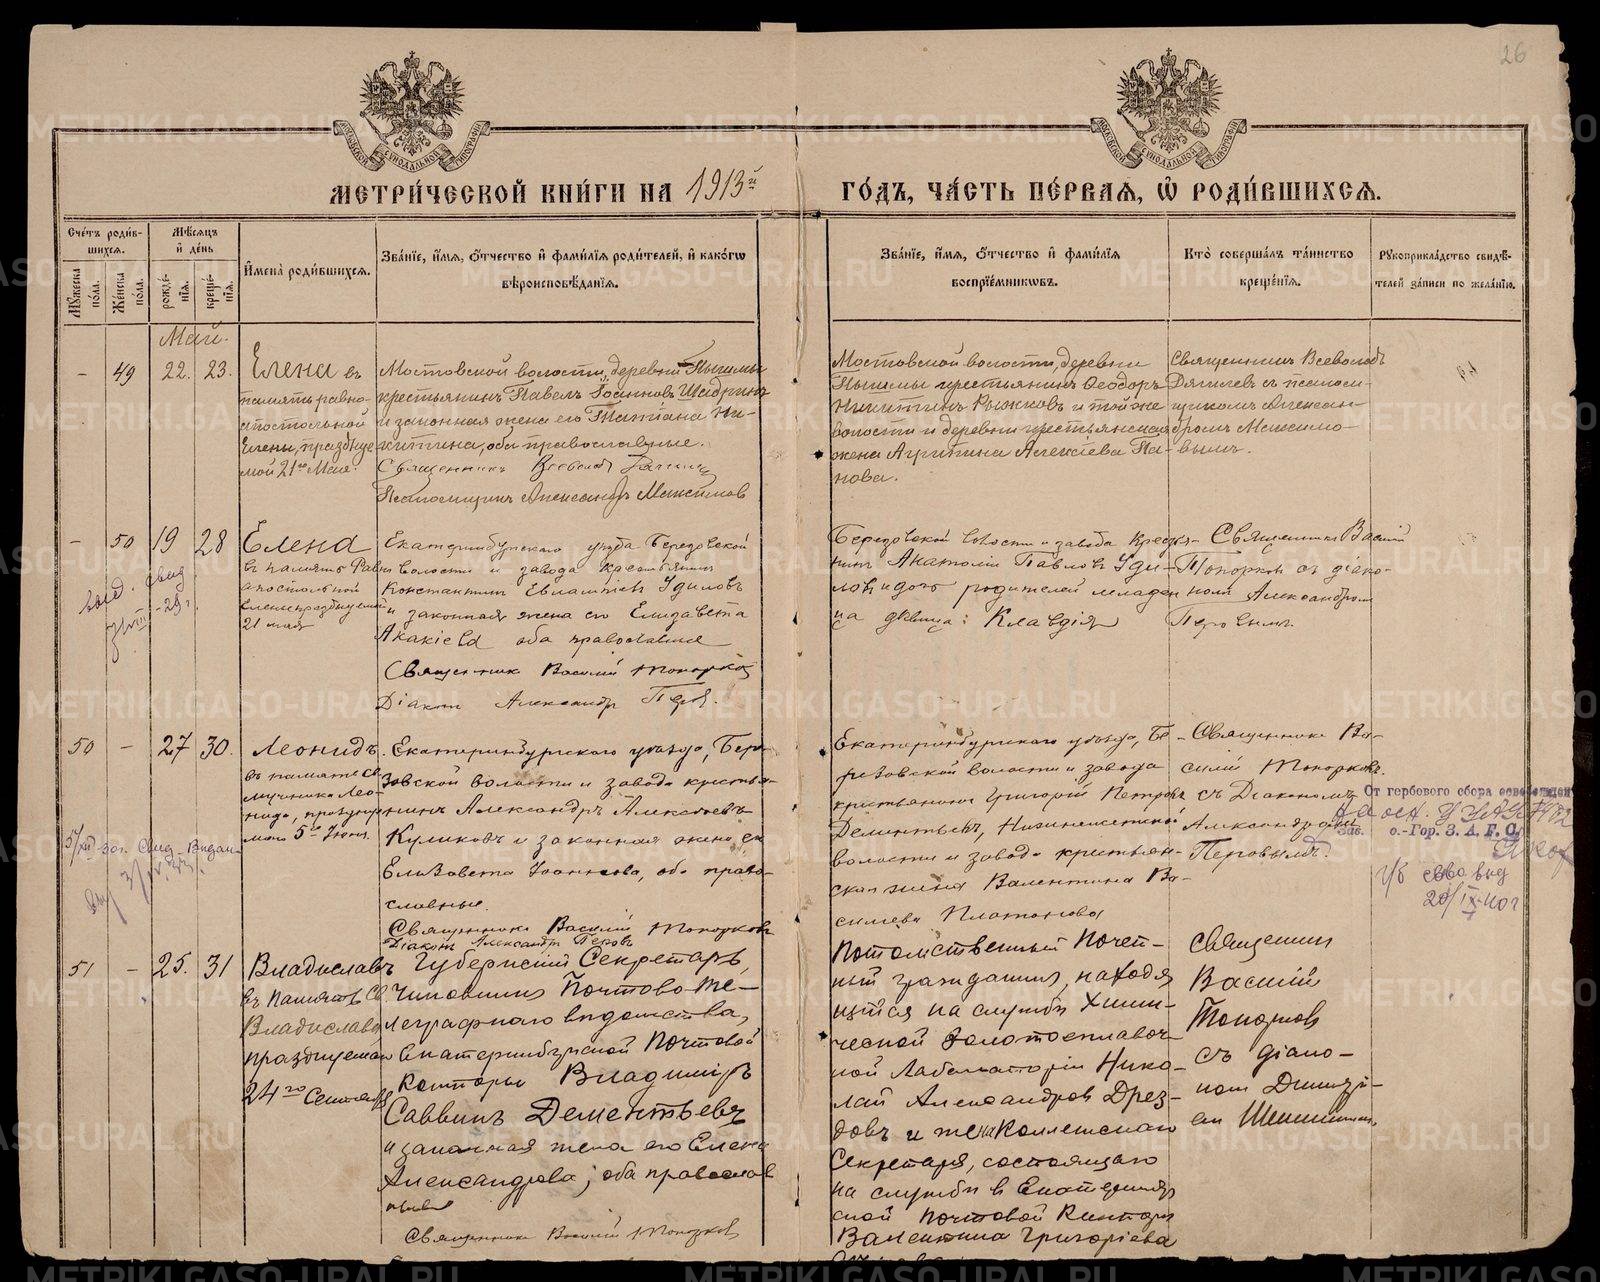 26
МЕТРИ́ЧЕСКОЙ КНИ́ГИ НА 1913й ГО́ДЪ, ЧА́СТЬ ПЕ́РВАЯ, Ѿ РОДИ́ВШИХСЯ.
Сче́тъ роди́вшихся.
Му́жеска по́ла.
Же́нска по́ла.
Мѣ́сяцъ и де́нь
рожде́нія.
креще́нія.
Имена̀ роди́вшихся.
Зва́ніе, и́мя, о́тчество и фами́лія роди́телей, и како́гѡ
вѣроисповѣ́данія.
Зва́ніе, и́мя, о́тчество и фами́лія
воспріе́мниковъ.
Кто̀ соверша́лъ та́инство
креще́нія.
Рукоприкла́дство свидѣ́-
телей за́писи по жела́нію.
Май.
- 49 22. 23.
Елена въ
память равно-
апостольной
Елены, праздуе
мой 21го Мая.
Мостовской волости, деревни Пышмы
крестьянинъ Павелъ Іоанновъ Шадринъ
и законная жена его Татіана Ни-
китина, оба православные.
Священникъ Всеволодъ
Псаломщикъ Александръ Максимовъ
Мостовской волости, деревни
Пышмы крестьянинъ Ѳеодоръ
Никитинъ Рыжковъ и той же
волости и деревни крестьянская
жена Агрипина Алексіева Па-
нова.
Священникъ Всеволодъ
съ псалом-
щикомъ Алексан-
дромъ Максимо-
вымъ.
- 50 19 28
Елена
въ память Рав
апостольной
Елены празднуемой
21 мая
Екатеринбургскаго уѣзда Березовской
волости и завода крестьянинъ
Константинъ Евлампіевъ Удиловъ
и законная жена его Елизавета
Акакіева оба православные
Священникъ Василій Топорковъ
Діаконъ Александръ Перовъ.
Березовской волости и завода Крестья-
нинъ Анатолій Павловъ Уди-
ловъ и дочь родителей младен
ца дѣвица: Клавдія
Священникъ Василій
Топорковъ съ діако-
номъ Александромъ
Перовымъ.
50 - 27 30.
Леонидъ.
въ память Св
мученика Лео-
нида, празднуе
маго 5го Іюня.
Екатеринбургскаго уѣзда, Бере-
зовской волости и завода крестья-
нинъ Александръ Алексѣевъ
Куликовъ и законная жена его
Елизавета Іоаннова, оба право-
славные.
Священникъ Василій Топорковъ
Діаконъ Александръ Перовъ
Екатеринбургскаго уѣзда, Бе-
резовской волости и завода
крестьянинъ Григорій Петровъ
Дементьевъ, Нижнеисетской
волости и завода крестьян-
ская жена Валентина Ва-
сильева Платонова
Священникъ Ва-
силій Топорковъ.
съ Діакономъ
Александромъ
Перовымъ.
От гербового сбора освобожден
Зав. о.-Гор. З. А. Г. С.
20/IX-40г
51 - 25. 31
Владиславъ
въ память Св
Владислава
празднуемаго
24го Сентября
Губернскій Секретарь,
Чиновникъ Почтово-Те-
леграфнаго вѣдомства,
Екатеринбургской Почтовой
Конторы Владиміръ
Саввинъ Дементьевъ
и законная жена его Елена
Александрова; оба православ
ные
Священникъ Василій Топорковъ
Потомственный Почет-
ный гражданинъ, находя
щійся на службѣ Хими-
ческой Золотосплавоч-
ной Лабораторіи Нико-
лай Александровъ Дрез-
довъ и жена Коллежскаго
Секретаря, состоящаго
на службѣ в Екатеринбург
ской Почтовой Конторѣ
Валентина Григоріева
Священникъ
Василій
Топорковъ
съ діако-
номъ Димитрі-
емъ
METRIKI.GASO-URAL.RU